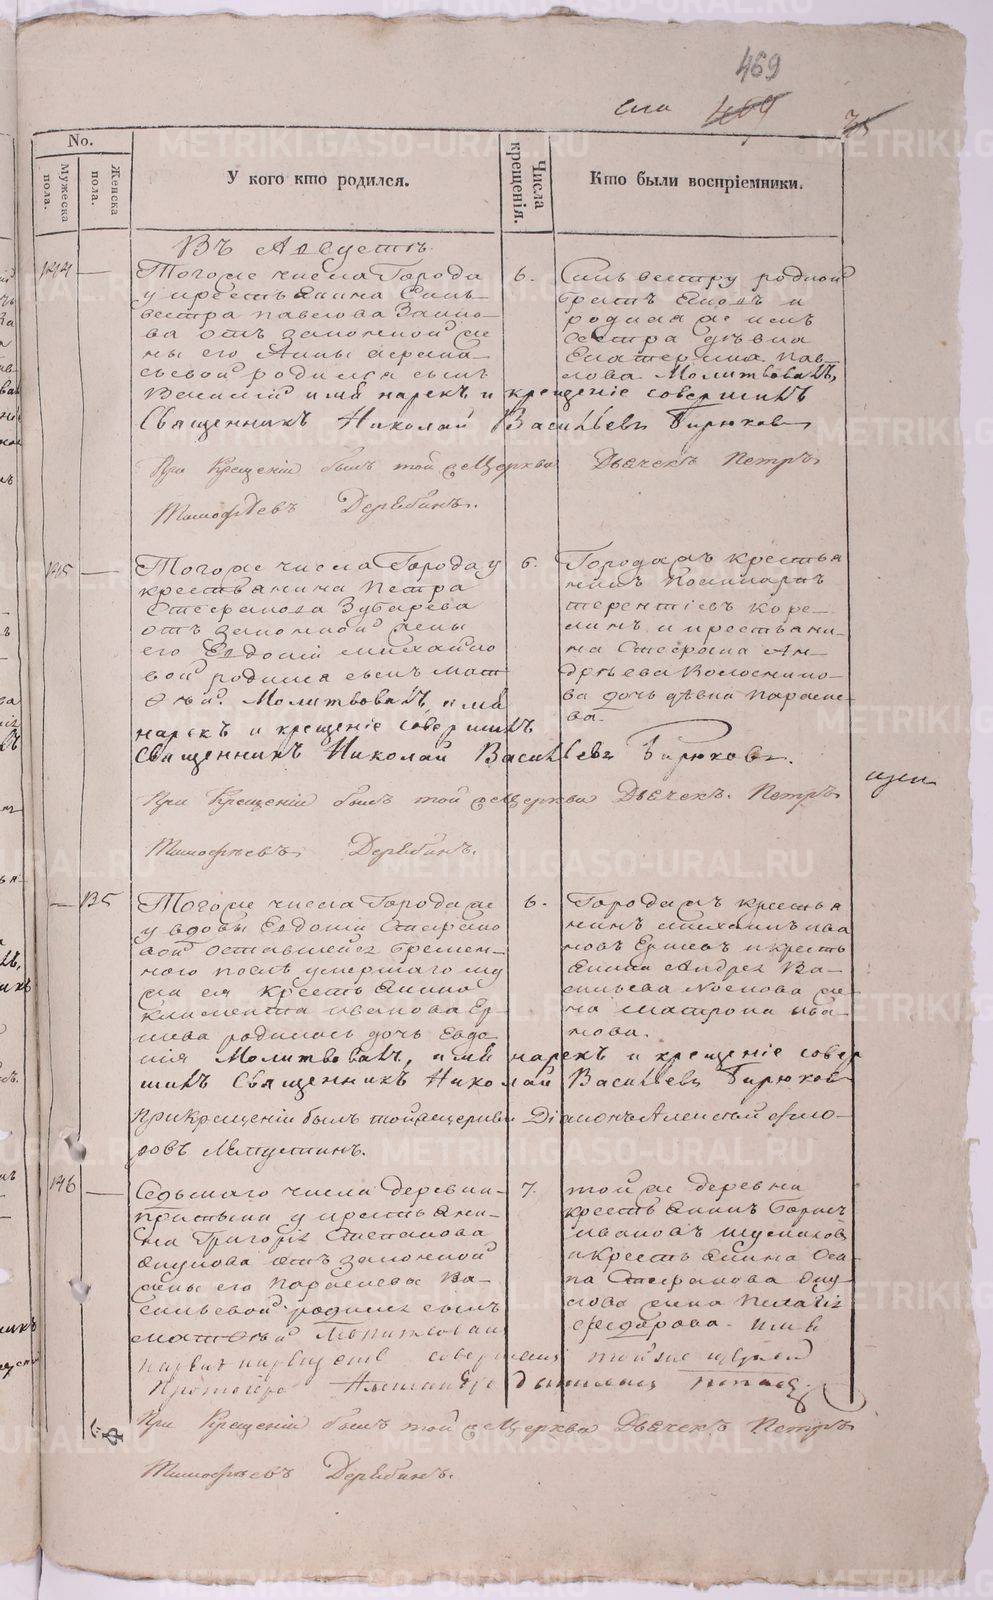 469
469
No.
Мужеска пола.
Женска пола.
У кого кто родился.
Числа крещенія.
Кто были воспріемники.
Въ Августѣ.
144
Тогоже числа Города
у крестьянина Силь-
вестра Павлова
ва отъ законной же
ны его Анны
родился сынъ
Василій имя нарекъ и крещеніе совершилъ
Священникъ Николай Васильевъ Бирюковъ
6.
Сильвестру родной
братъ и
родная же имъ
сестра дѣвка
Екатерина Пав-
лова Молитвовалъ,
При Крещеніи былъ той же Церкви Дьячекъ Петръ
Тимофѣевъ Дерябинъ.
145
Тогоже числа Города у
крестьянина Петра
Стефанова Зубарева
отъ законной жены
его Евдокіи Михайло
вой родился сынъ Мат
ѳѣй. Молитвовалъ, имя
нарекъ и крещеніе совершилъ
Священникъ Николай Васильевъ Бирюковъ.
6.
Города жъ крестья
нинъ
Терентіевъ Коре-
линъ и крестьяни-
на Стефана Ан-
дрѣева Колоснико-
ва дочь дѣвка Параске-
ва.
При Крещеніи былъ той же Церкви Дьячекъ Петръ
Тимофѣевъ Дерябинъ.
135
Тогоже числа Города же
у вдовы Евдокіи Стефано
вой оставшейся беремен-
ною послѣ умершаго му
жа ея крестьянина
Климента Иванова Ер
шева родилась дочь Евдо
кія Молитвовалъ, имя нарекъ и крещеніе совер
шилъ Священникъ Николай Васильевъ Бирюковъ
6.
Города жъ крестья
нинъ Михаилъ Ива
новъ Ершевъ и кресть
янина Андрея Ва-
сильева Носкова же
на Матрона Ива-
нова.
При крещеніи былъ той же церкви Діаконъ Алексѣй Ѳео-
ровъ
146
Седьмаго числа деревни
у крестьяни-
на Григорія Степанова
Окулова отъ законной
жены его Параскевы Ва-
сильевой родился сынъ
Матѳѣй
совершилъ той же церкви
Протоіерей Александръ
7.
той же деревни
крестьянинъ Борисъ
Ивановъ
и крестьянина Оси-
па Стефанова Оку-
лова жена Пелагія
Ѳедорова. имя
При Крещеніи былъ той же Церкви Дьячекъ Петръ
Тимофѣевъ Дерябинъ.
METRIKI.GASO-URAL.RU